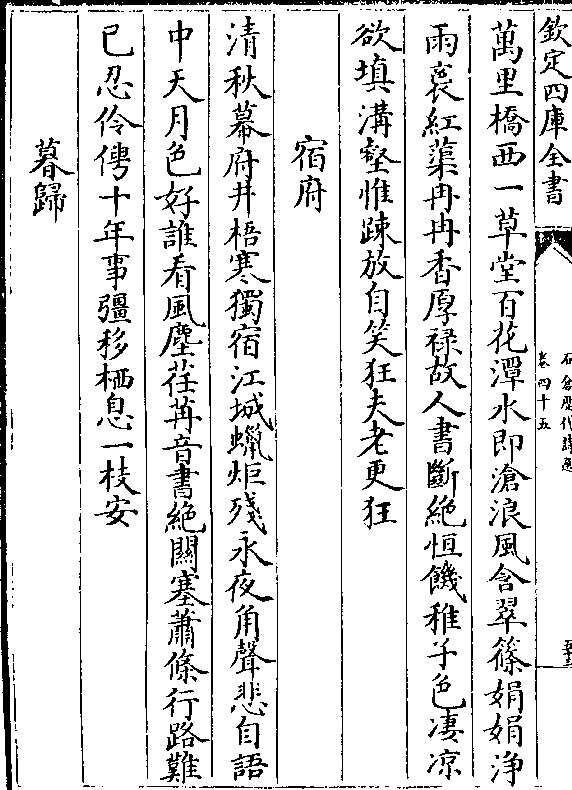 欽定四庫全書
石倉歷代詩選
卷四十五
萬里橋西一草堂百花潭水即滄浪風含翠篠娟娟淨
雨裛紅蕖冉冉香厚祿故人書斷絶恒饑稚子色凄凉
欲填溝壑惟踈放自笑狂夫老更狂
宿府
清秋幕府井梧寒獨宿江城蠟炬殘永夜角聲悲自語
中天月色好誰看風塵荏苒音書絶關塞蕭條行路難
已忍伶俜十年事彊移栖息一枝安
暮歸